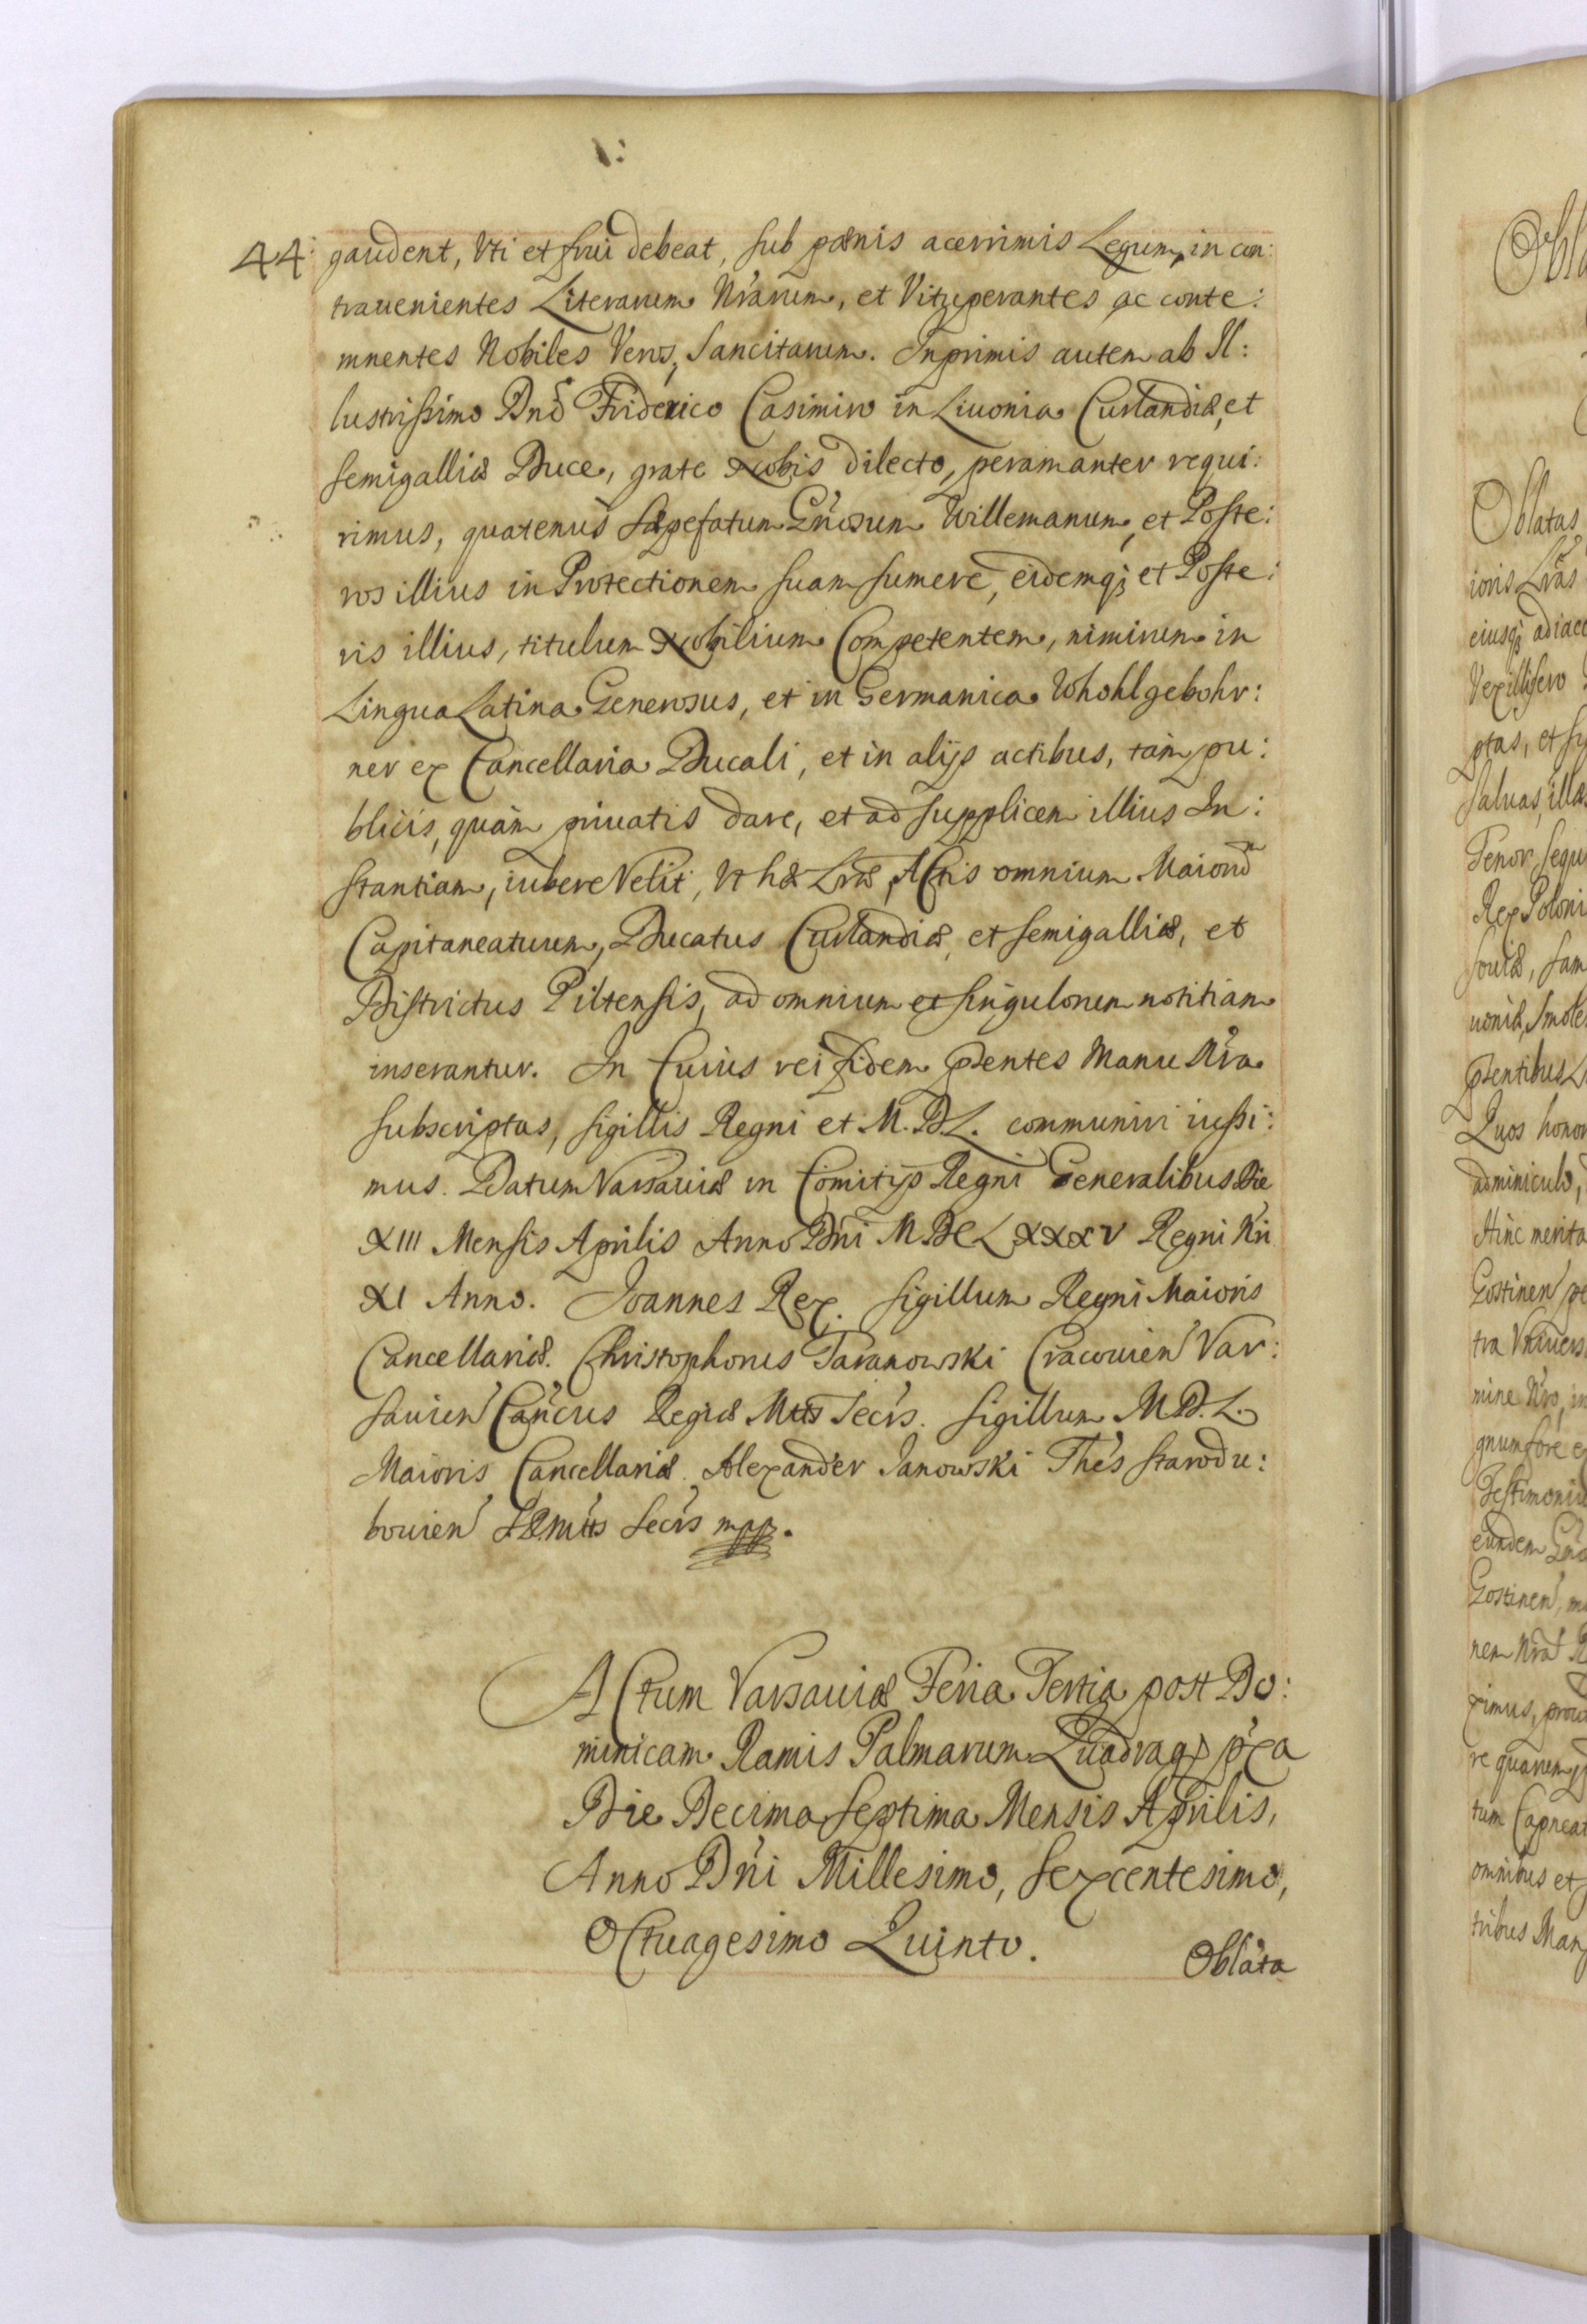 44 gaudent, Vti et frui debeat, sub pænis acerrimis Legum, in con:
trauenientes Literarum Nrarum, et Vituperantes ac conte:
mnentes Nobiles Veros, Sancitarum. Inprimis autem ab Il:
lustrissimo Dno Friderico Casimiro in Liuonia Curlandiæ, et
Semigalliæ Duce, grate Nobis dilecto, peramanter requi:
rimus, quatenus Sæpefatum Gnosum Willemanum, et Poste:
ros illius in Protectionem suam sumere, eidemq; et Poste:
ris illius, titulum Nobilium Competentem, nimirum in
Lingua Latina Generosus, et in Germanica Whohlgebohr:
ner ex Cancellaria Ducali, et in alijs actibus, tàm pu:
blicis, quàm priuatis dare, et ad supplicem illius In:
stantiam, iubere Velit, Vt hæ Lræ, Actis omnium Maiorũ
Capitaneatuum, Ducatus Curlandiæ, et Semigalliæ, et
Districtus Piltensis, ad omnium et singulorum notitiam
inserantur. In Cuius rei fidem pntes Manu Nra
subscriptas, sigillis Regni et M. D. L. communiri iussi:
mus. Datum Varsauiæ in Comitijs Regni Generalibus Die
XIII Mensis Aprilis Anno Dni MDCLXXXV Regni Nri
XI Anno. Joannes Rex. Sigillum Regni Maioris
Cancellariæ. Christophorus Taranowski Cracouien Var:
sauien Cancus Regiæ Mttis Secrs. Sigillum M. D. L.
Maioris Cancellariæ. Alexander Janowski Thes Starodu:
bouien SRMttis Secrs mpp.
Actum Varsauiæ Feria Tertia post Do:
minicam Ramis Palmarum Quadrag pxa
Die Decima Septima Mensis Aprilis,
Anno Dni Millesimo, Sexcentesimo,
Octuagesimo Quinto.
Oblata
Oblatas
ioris Lras
eiusq; adiace
Vexillifero
ptas, et
saluas, illæs
Tenor sequi
Rex Poloni
souiæ, Sam
uoniæ, Smole
pntibus
Quos honor
adminiculo,
Hinc merita
Gostinen
tra Vniuers
mine Nro, in
gnum fore
Testimonio
eundem
Gostinen,
nem Nra
ximus,
re quarum
tum
omnibus et
tribus Man